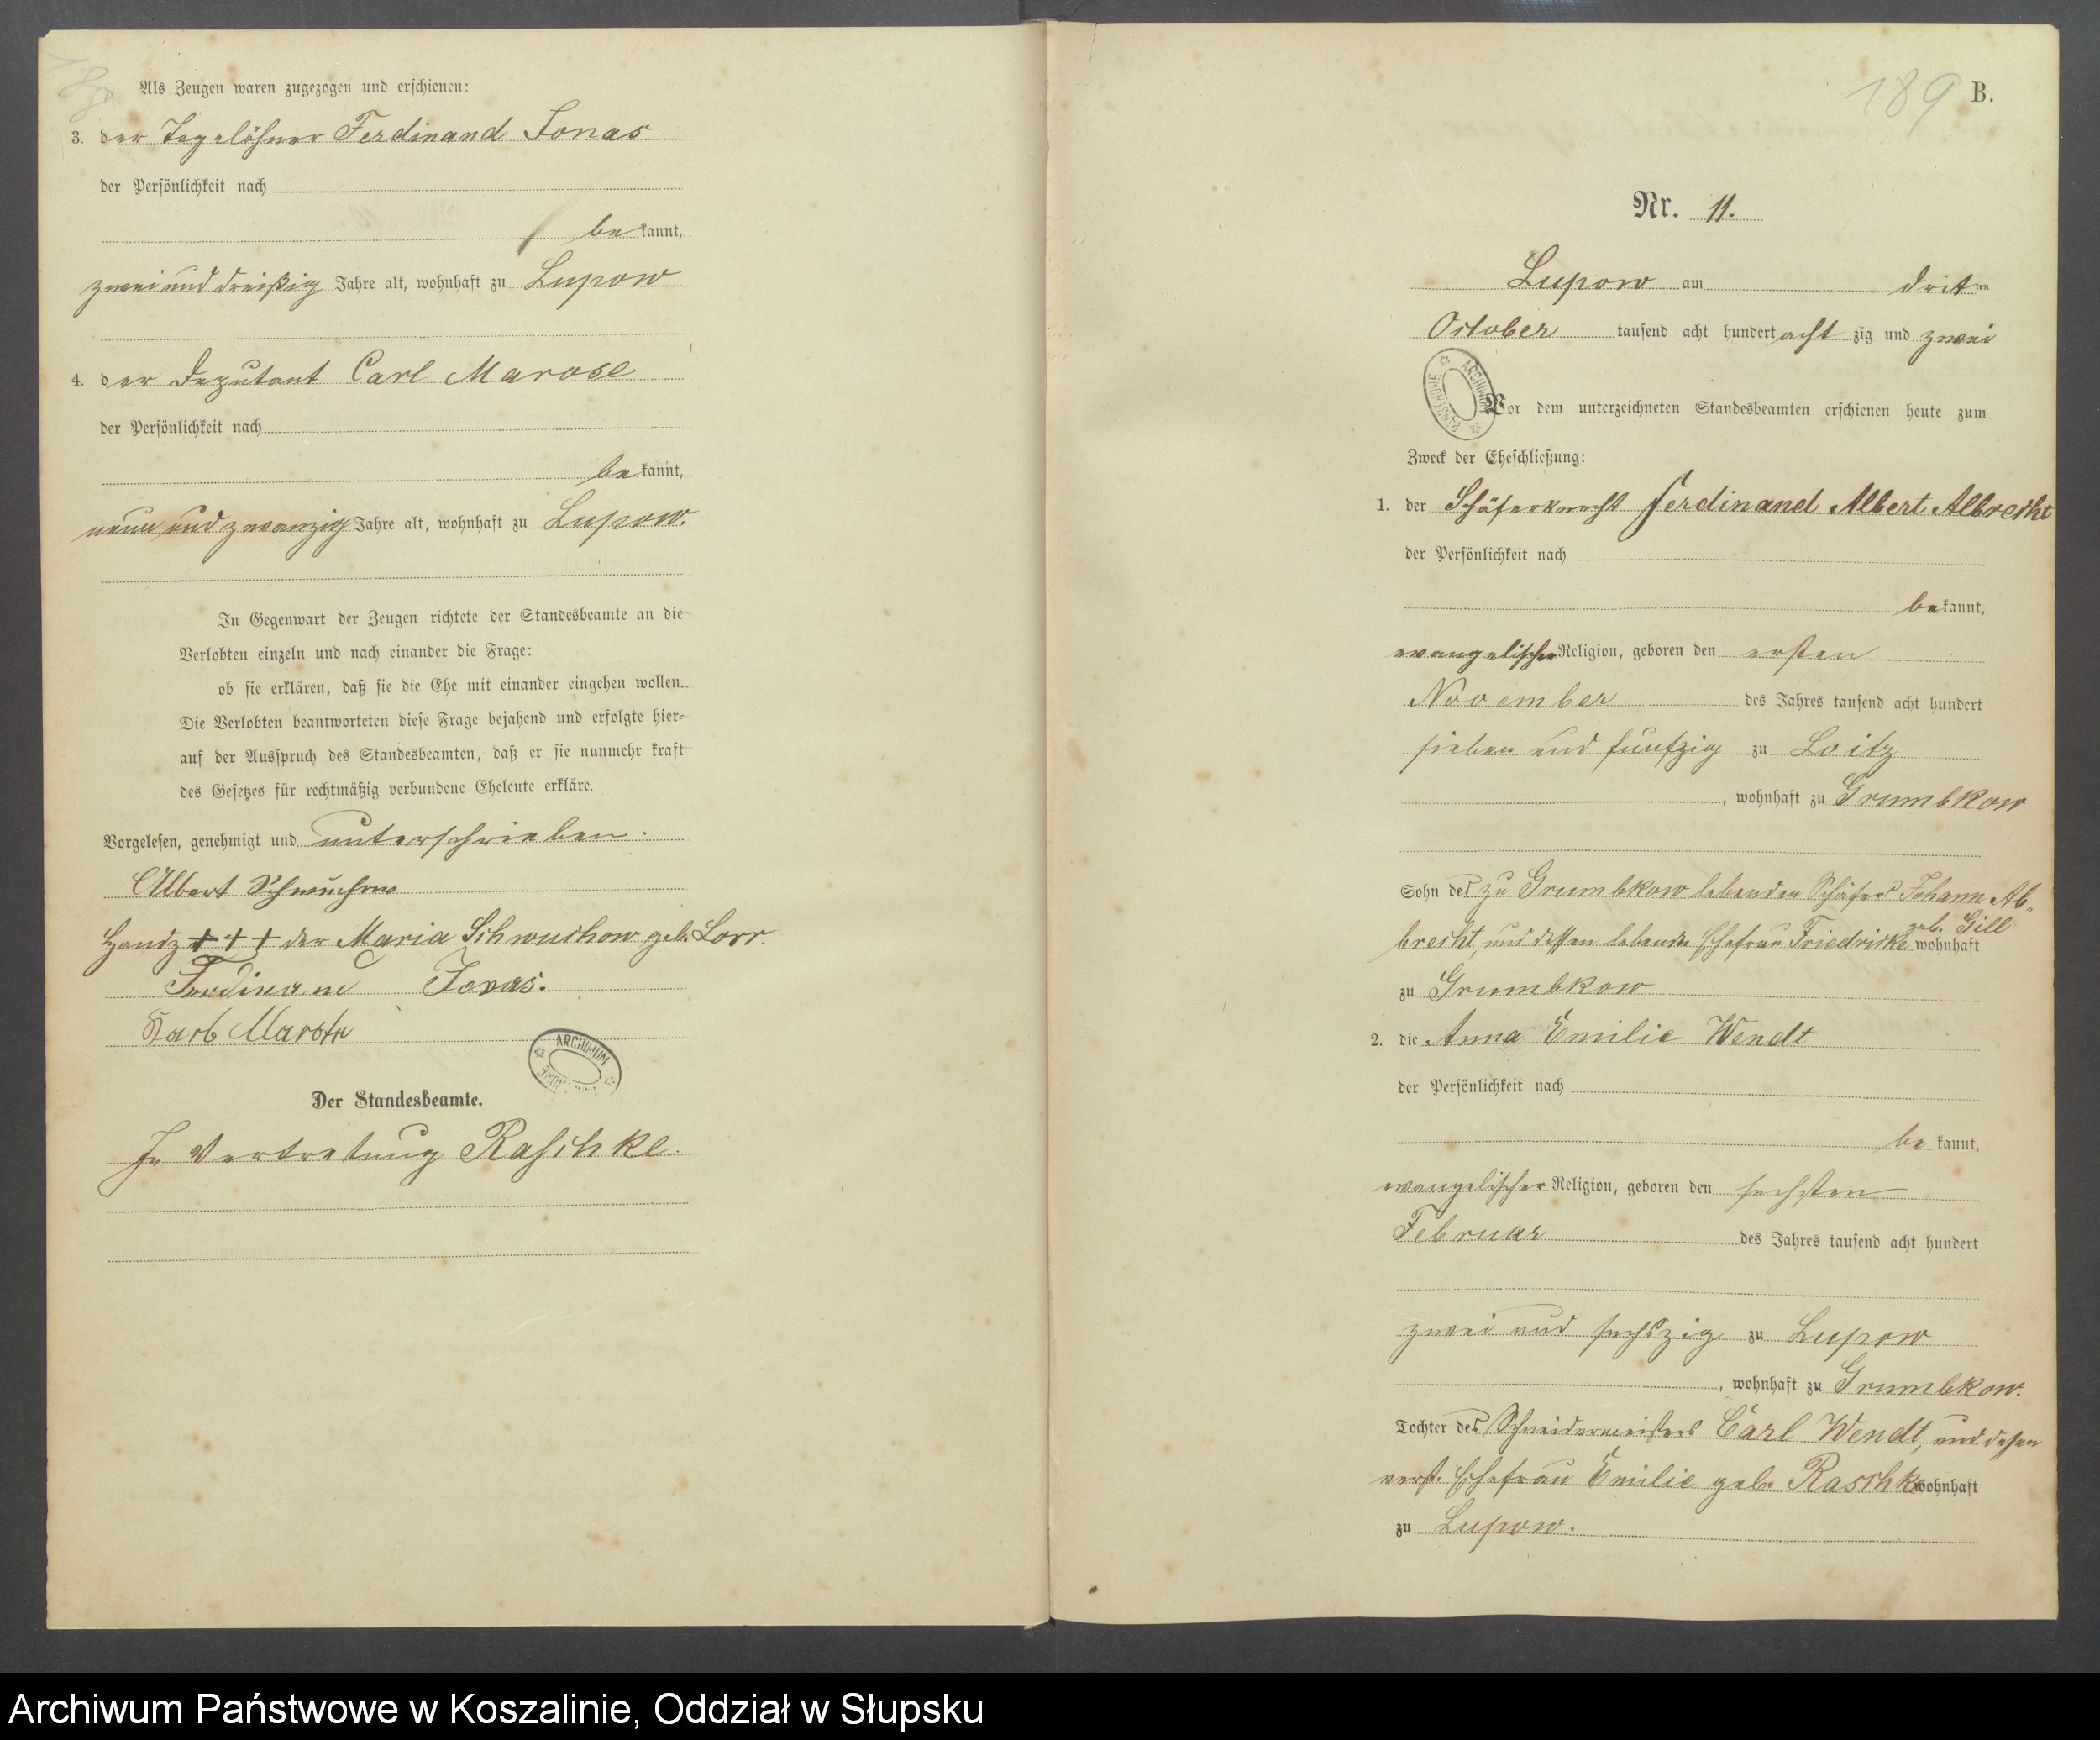 188
Als Zeugen waren zugezogen und erschienen:
3. der Tagelöhner Ferdinand Jonas
der Persönlichkeit nach
bekannt,
zwei und dreißig Jahre alt, wohnhaft zu Lupow
4. der Deputant Carl Marose
der Persönlichkeit nach
bekannt,
neun und zwanzig Jahre alt, wohnhaft zu Lupow.
In Gegenwart der Zeugen richtete der Standesbeamte an die
Verlobten einzeln und nach einander die Frage:
ob sie erklären, daß sie die Ehe mit einander eingehen wollen.
Die Verlobten beantworteten diese Frage bejahend und erfolgte hier-
auf der Ausspruch des Standesbeamten, daß er sie nunmehr kraft
des Gesetzes für rechtmäßig verbundene Eheleute erkläre.
Vorgelesen, genehmigt und unterschrieben.
Albert Schwuchow
Handz +++ der Maria Schwuchow geb. Lorr.
Ferdinand Jonas.
Karl Marose
ARCHIWUM
Der Standesbeamte.
In Vertretung Raschke.
189 B.
Nr. 11.
Lupow am dritten
October tausend acht hundert acht zig und zwei
ARCHIWUM PAŃSTWOWE
Vor dem unterzeichneten Standesbeamten erschienen heute zum
Zweck der Eheschließung:
1. der Schäferknecht Ferdinand Albert Albrecht
der Persönlichkeit nach
bekannt,
evangelischer Religion, geboren den ersten
November des Jahres tausend acht hundert
sieben und funfzig zu Loitz
, wohnhaft zu Grumbkow
Sohn des zu Grumbkow lebenden Schäfers Johann Al-
brecht, und dessen lebende Ehefrau Friedrike geb. Gill wohnhaft
zu Grumbkow
2. die Anna Emilie Wendt
der Persönlichkeit nach
bekannt,
evangelischer Religion, geboren den sechsten
Februar des Jahres tausend acht hundert
zwei und sechszig zu Lupow
, wohnhaft zu Grumbkow.
Tochter des Schneidermeisters Carl Wendt, und dessen
verst. Ehefrau Emilie geb. Raschke wohnhaft
zu Lupow.
Archiwum Państwowe w Koszalinie, Oddział w Słupsku